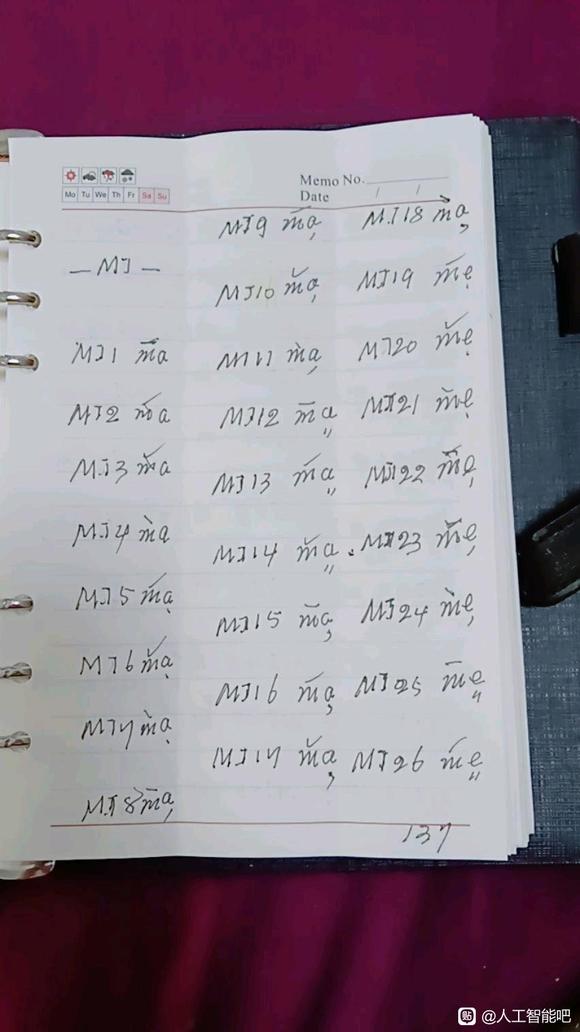 Memo No.
Mo Tu We Th Fr Sa Su
Date / /
— MJ —
MJ1 m̄a
MJ2 ḿa
MJ3 m̌a
MJ4 m̀a
MJ5 ḿạ
MJ6 m̌ạ
MJ7 m̀ạ
MJ8 m̄a̦
MJ9 ḿa̦
MJ10 m̌a̦
MJ11 m̀a̦
MJ12 m̄a̎
MJ13 ḿa̎
MJ14 m̌a̎
MJ15 m̄a̦
MJ16 ḿa̦
MJ17 m̌a̦
MJ18 m̀a̦
MJ19 ḿẹ
MJ20 m̌ẹ
MJ21 m̀ẹ
MJ22 m̄e̦
MJ23 m̌e̦
MJ24 m̀e̦
MJ25 m̄e̎
MJ26 ḿe̎
137
@人工智能吧